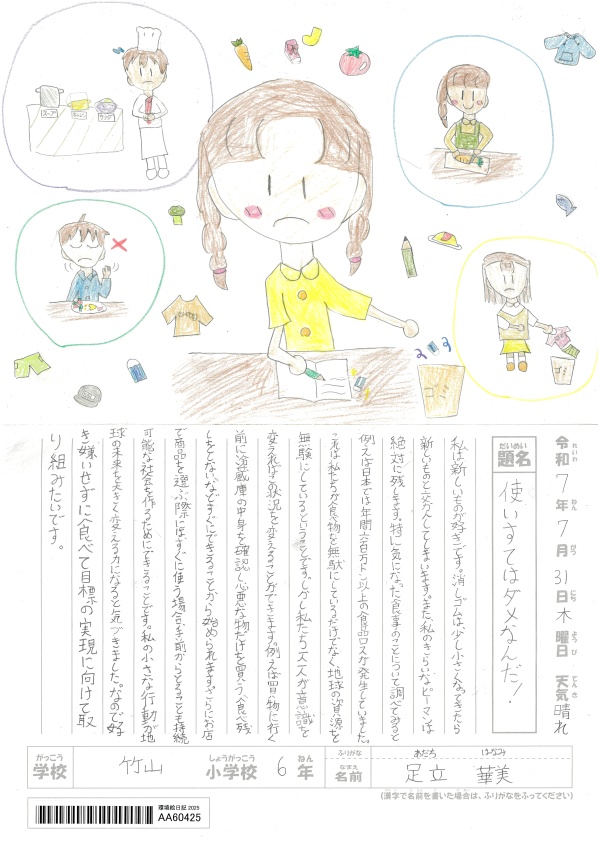 スープ
キッチン
令和7年7月31日木曜日 天気 晴れ
れいわ ねん がつ にち よう び てん き
だいめい
題名
使いすてはダメなんだ!
私は新しいものが好きです。消しゴムは、少し小さくなってきたら
新しいものと交かんしてしまいます。また、私のきらいなピーマンは
絶対に残します。特に気になった食事のことについて調べてみると
例えば日本では年間六百万トン以上の食品ロスが発生していました。
これは私たちが食物を無駄にしているだけでなく、地球の資源を
無駄にしているということです。しかし私たち一人一人が意識を
変えればこの状況を変えることができます。例えば買い物に行く
前に冷蔵庫の中身を確認し必要な物だけを買う、食べ残
しをしないなどすぐにできることから始められます。さらにお店
で商品を選ぶ際にはすぐに使う場合、手前からとることも持続
可能な社会を作るためにできることです。私の小さな行動が地
球の未来を大きく変える力になると気づきました。なので好
き嫌いせずに食べて目標の実現に向けて取
り組みたいです。
がっこう
学校
竹山
しょうがっこう
小学校
6
ねん
年
ふりがな
あだち はなみ
なまえ
名前
足立 華美
(漢字で名前を書いた場合は、ふりがなをふってください)
環境絵日記 2025
AA60425